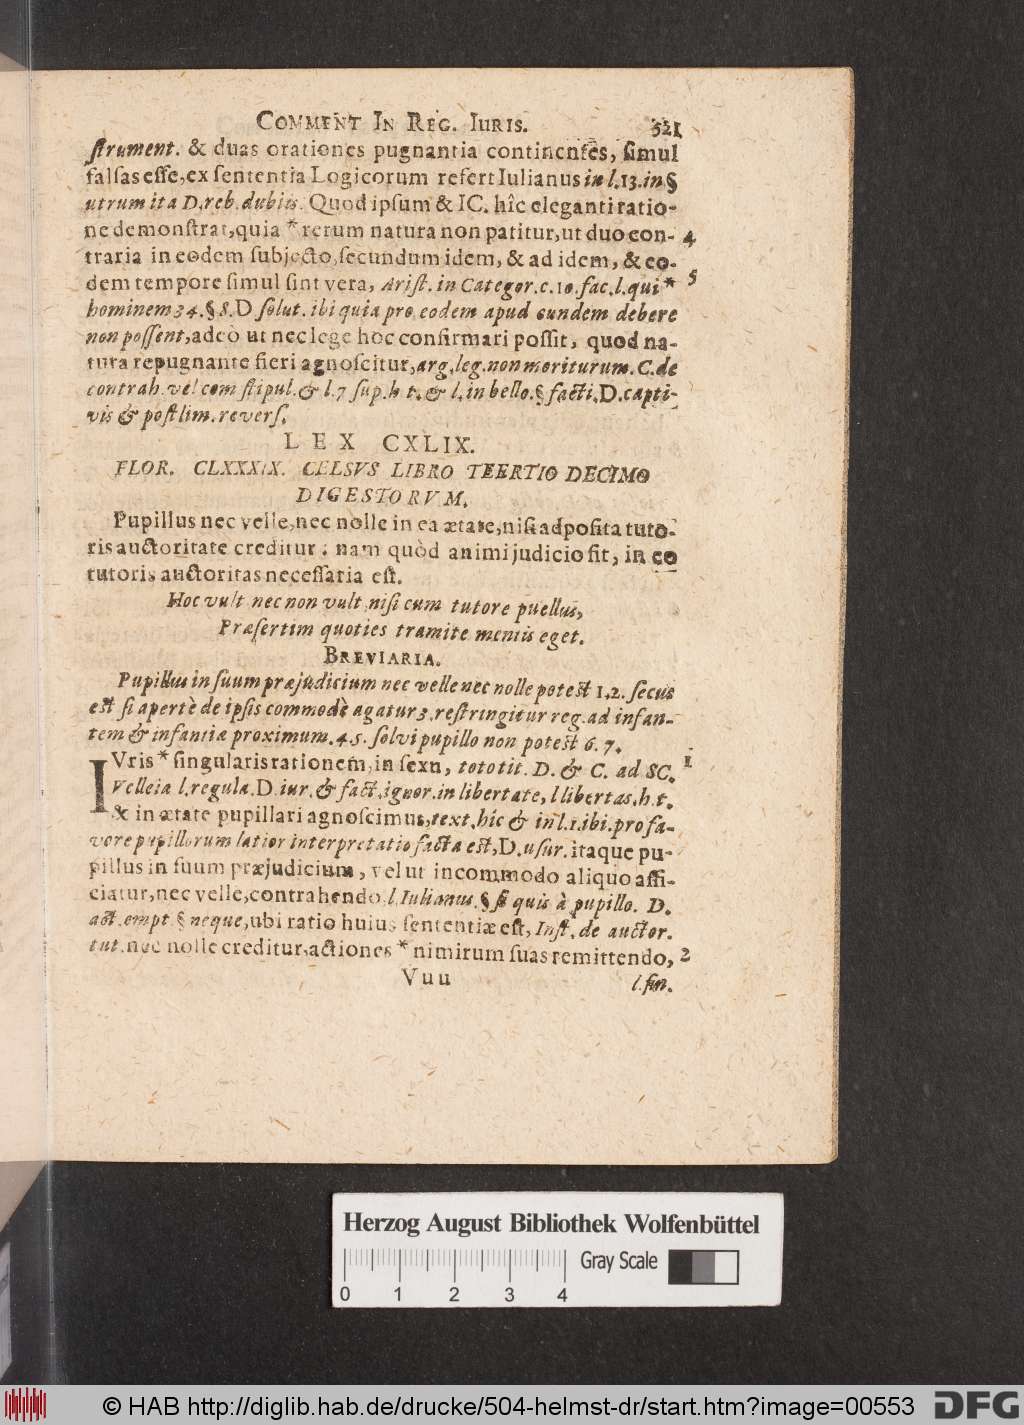 COMMENT IN REG. IURIS. 521
ſtrument. & duas orationes pugnantia continentes, ſimul
falſas eſſe, ex ſententia Logicorum refert Iulianus in l. 13. in §
utrum ita D. reb. dubiis. Quod ipſum & IC. hîc eleganti ratio-
ne demonſtrat, quia * rerum natura non patitur, ut duo con- 4
traria in eodem ſubjecto, ſecundum idem, & ad idem, & eo-
dem tempore ſimul ſint vera, Ariſt. in Categor. c. 10. fac. l. qui * 5
hominem 34. § 8. D ſolut. ibi quia pro eodem apud eundem debere
non poſſent, adeò ut nec lege hoc confirmari poſſit, quod na-
tura repugnante fieri agnoſcitur, arg. leg. non moriturum. C. de
contrah. vel com ſtipul. & l. 7 ſup. h t. & l. in bello. § facti. D. capti-
vis & poſtlim. reverſ.
LEX CXLIX.
FLOR. CLXXXIX. CELSVS LIBRO TEERTIO DECIMO
DIGESTORVM.
Pupillus nec velle, nec nolle in ea ætate, niſi adpoſita tuto-
ris auctoritate creditur: nam quòd animi judicio fit, in eo
tutoris auctoritas neceſſaria eſt.
Hoc vult nec non vult niſi cum tutore puellus,
Præſertim quoties tramite mentis eget.
BREVIARIA.
Pupillus in ſuum præjudicium nec velle nec nolle poteſt 1. 2. ſecus
eſt ſi apertè de ipſis commodè agatur 3. reſtringitur reg. ad infan-
tem & infantiæ proximum. 4. 5. ſolvi pupillo non poteſt 6. 7.
IVris * ſingularis rationem, in ſexu, toto tit. D. & C. ad SC. 1
Velleia l. regula. D. iur. & fact. ignor. in libertate, l libertas. h. t.
& in ætate pupillari agnoſcimus, text. hîc & in l. 1. ibi. pro fa-
vore pupillorum latior interpretatio facta eſt, D. uſur. itaque pu-
pillus in ſuum præjudicium, vel ut incommodo aliquo affi-
ciatur, nec velle, contrahendo l. Iulianus. § ſi quis à pupillo. D.
act. empt. § neque, ubi ratio huius ſententiæ eſt, Inſt. de auctor.
tut. nec nolle creditur, actiones * nimirum ſuas remittendo, 2
Vuu l. fin.
Herzog August Bibliothek Wolfenbüttel
Gray Scale
0 1 2 3 4
© HAB http://diglib.hab.de/drucke/504-helmst-dr/start.htm?image=00553
DFG